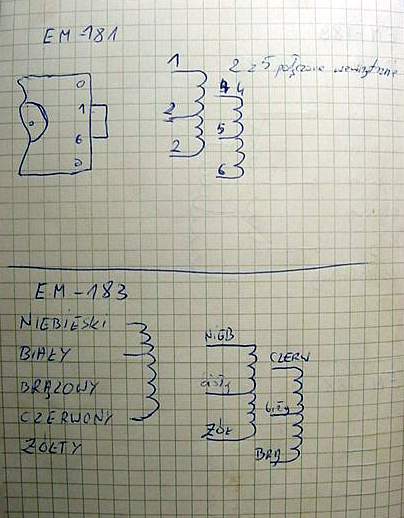 EM-181
1 2 z 5 połączone wewnętrznie
4
1 2 5
6 2 6
EM-183
NIEBIESKI NIEB
BIAŁY CZERW
BRĄZOWY biały
CZERWONY biały
ŻÓŁ
ŻÓŁTY BRĄ